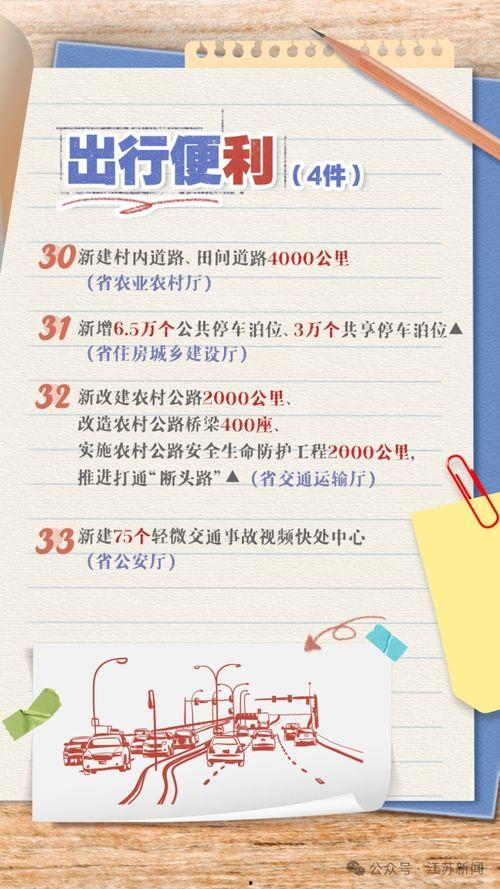 出行便利（4件）
30 新建村内道路、田间道路4000公里
（省农业农村厅）
31 新增6.5万个公共停车泊位、3万个共享停车泊位▲
（省住房城乡建设厅）
32 新改建农村公路2000公里、
改造农村公路桥梁400座、
实施农村公路安全生命防护工程2000公里，
推进打通“断头路”▲（省交通运输厅）
33 新建75个轻微交通事故视频快处中心
（省公安厅）
公众号：江苏新闻